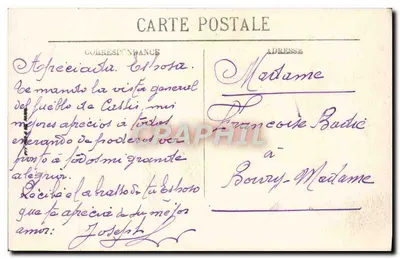 CARTE POSTALE
CORRESPONDANCE
ADRESSE
Apreciada Eshosa
Te mando la vista general
del pueblo de mis
mejores aprecios á todos
de poderos ver
pronto á todos mi grande
alegria.
Recibe el abrasso de tu eshoso
que te aprecia de du mejor
amor: Joseph
Madame
Françoise Badie
à
Bourg-Madame
CPAPHIL